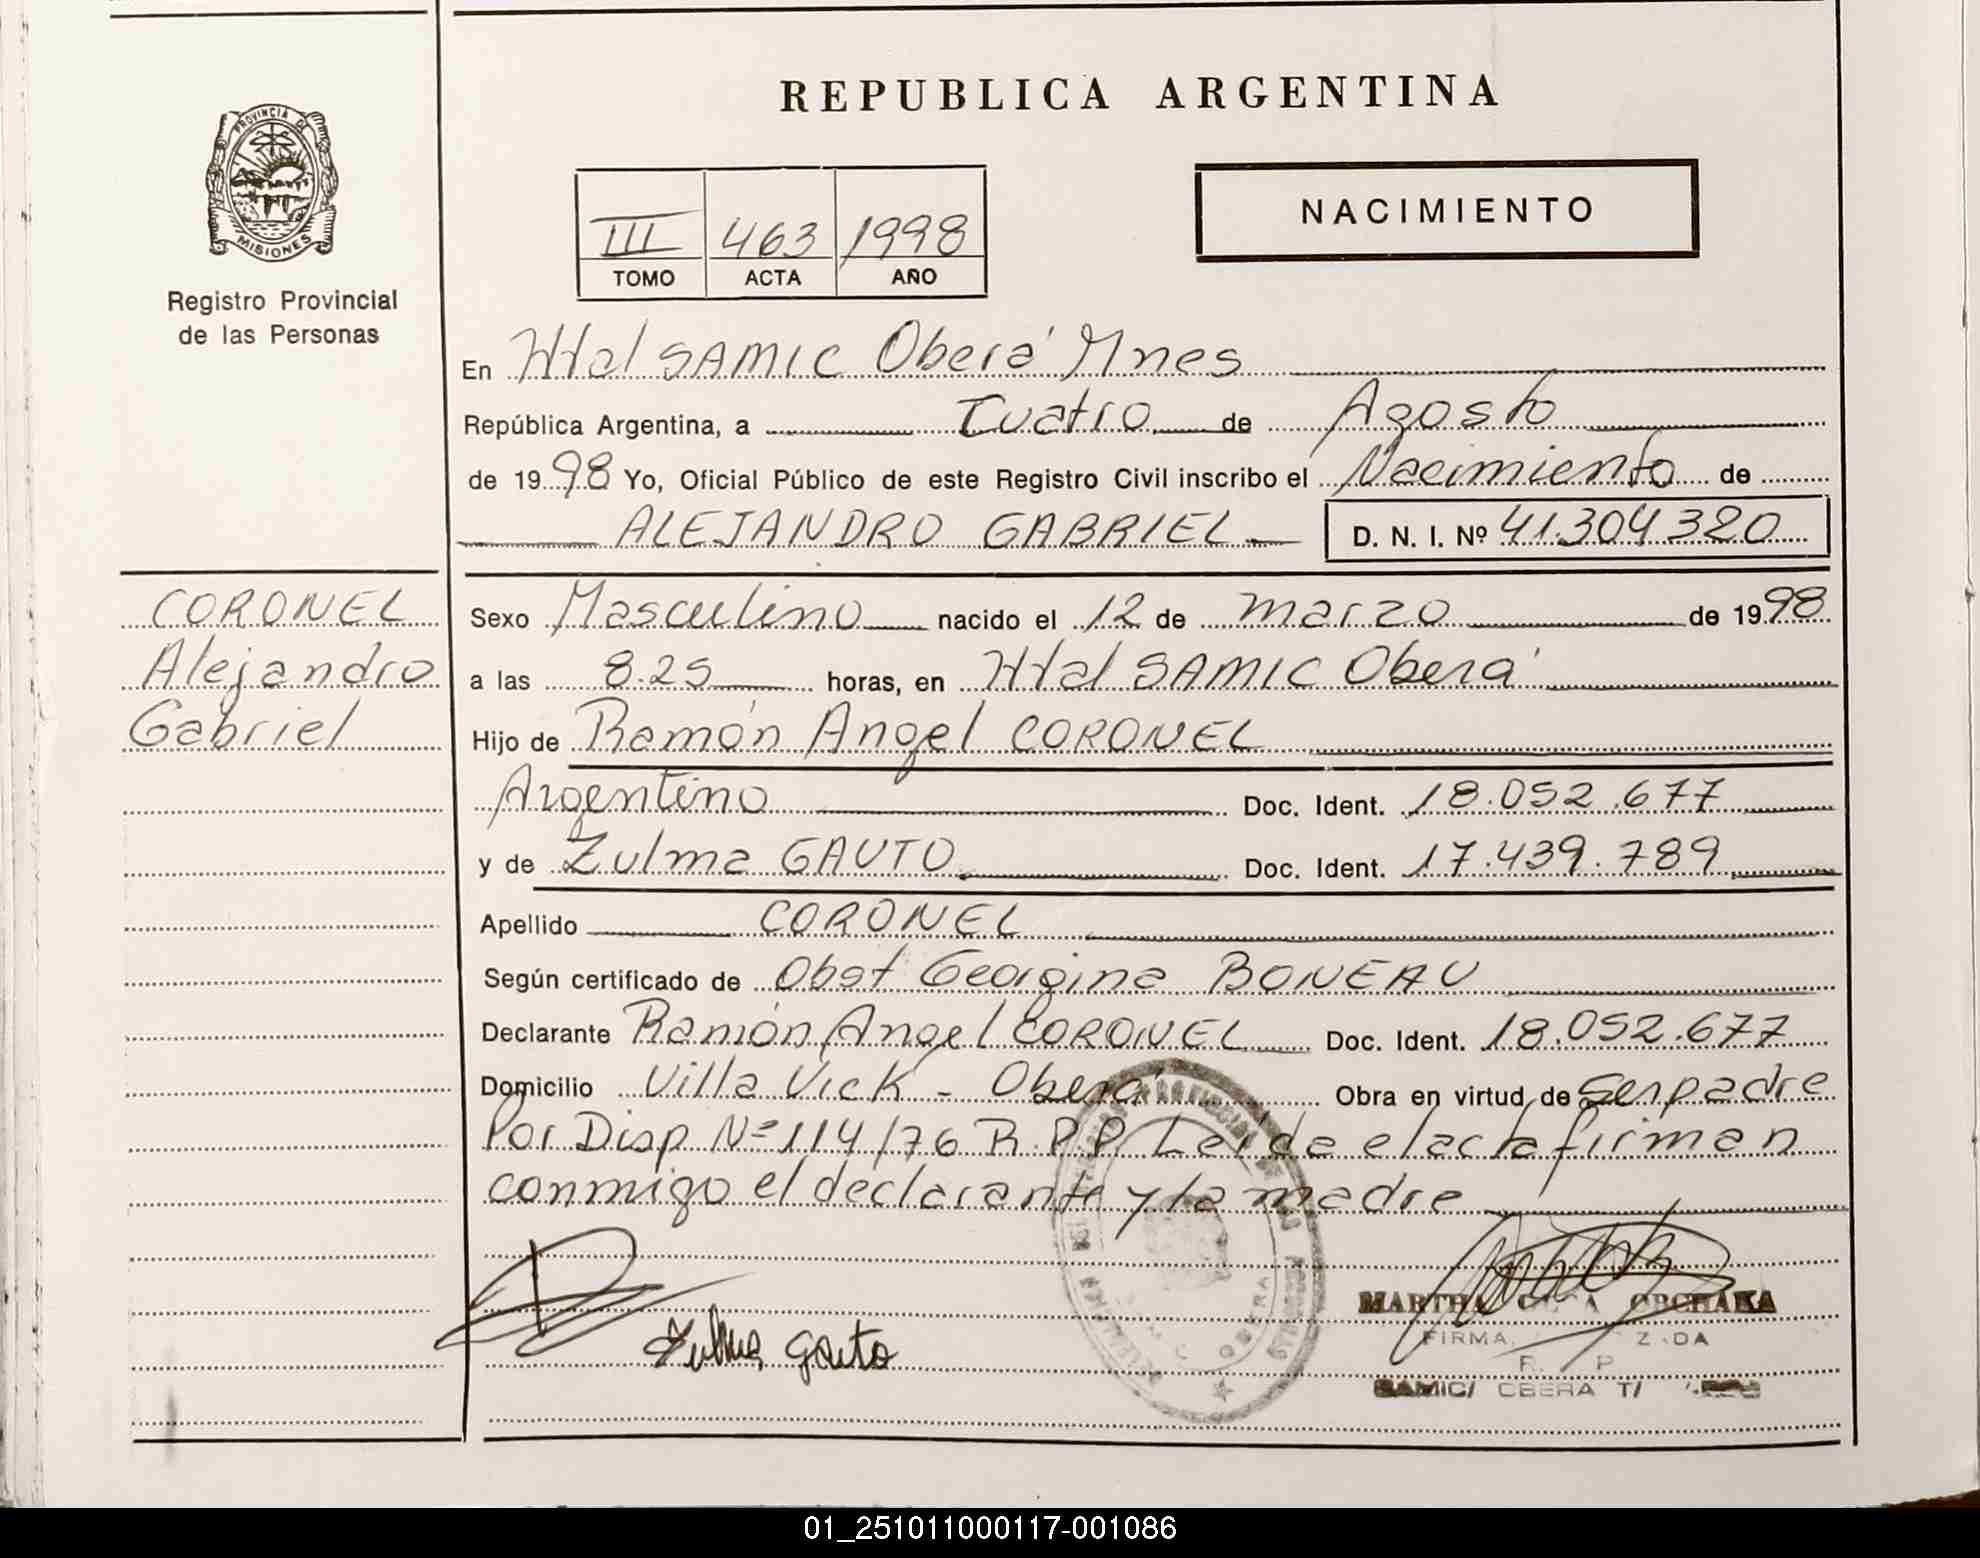 REPUBLICA ARGENTINA
PROVINCIA DE
MISIONES
Registro Provincial
de las Personas
III 463 1998
TOMO ACTA AÑO
NACIMIENTO
En Htal SAMIC Oberá Mnes
República Argentina, a Cuatro de Agosto
de 1998 Yo, Oficial Público de este Registro Civil inscribo el Nacimiento de
ALEJANDRO GABRIEL D. N. I. Nº 41.304 320
CORONEL
Alejandro
Gabriel
Sexo Masculino nacido el 12 de marzo de 1998
a las 8.25 horas, en Htal SAMIC Oberá
Hijo de Ramón Angel CORONEL
Argentino Doc. Ident. 18.052.677
y de Zulma GAUTO Doc. Ident. 17.439.789
Apellido CORONEL
Según certificado de Obst Georgina BONEAU
Declarante Ramón Angel CORONEL Doc. Ident. 18.052.677
Domicilio Villa Vick - Oberá Obra en virtud de Ser padre
Por Disp Nº 114/76 R.P.P. Leida el acta firman
conmigo el declarante y la madre
Zulma Gauto
MARTHA
FIRMA
R. P
SAMIC/ OBERA T/
OBERA
01_251011000117-001086